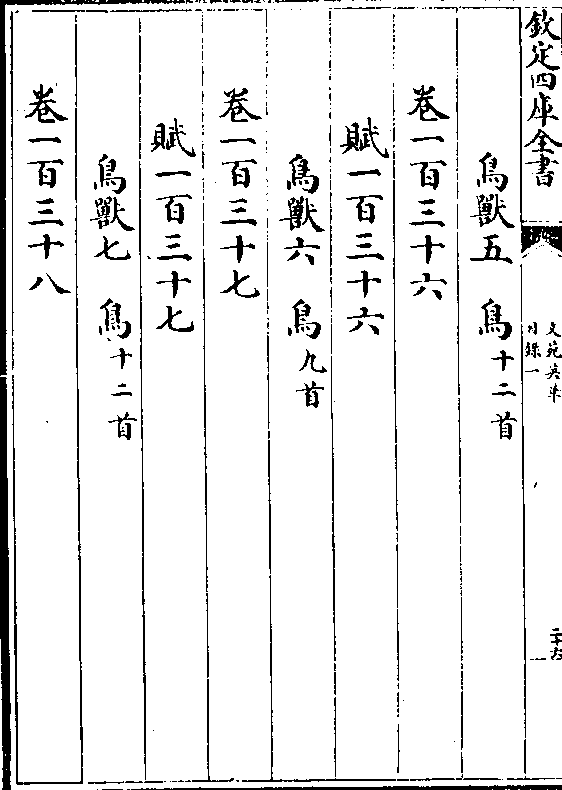 欽定四庫全書
文苑英華
目錄一
二十六
鳥獸五 鳥十二首
卷一百三十六
賦一百三十六
鳥獸六 鳥九首
卷一百三十七
賦一百三十七
鳥獸七 鳥十二首
卷一百三十八